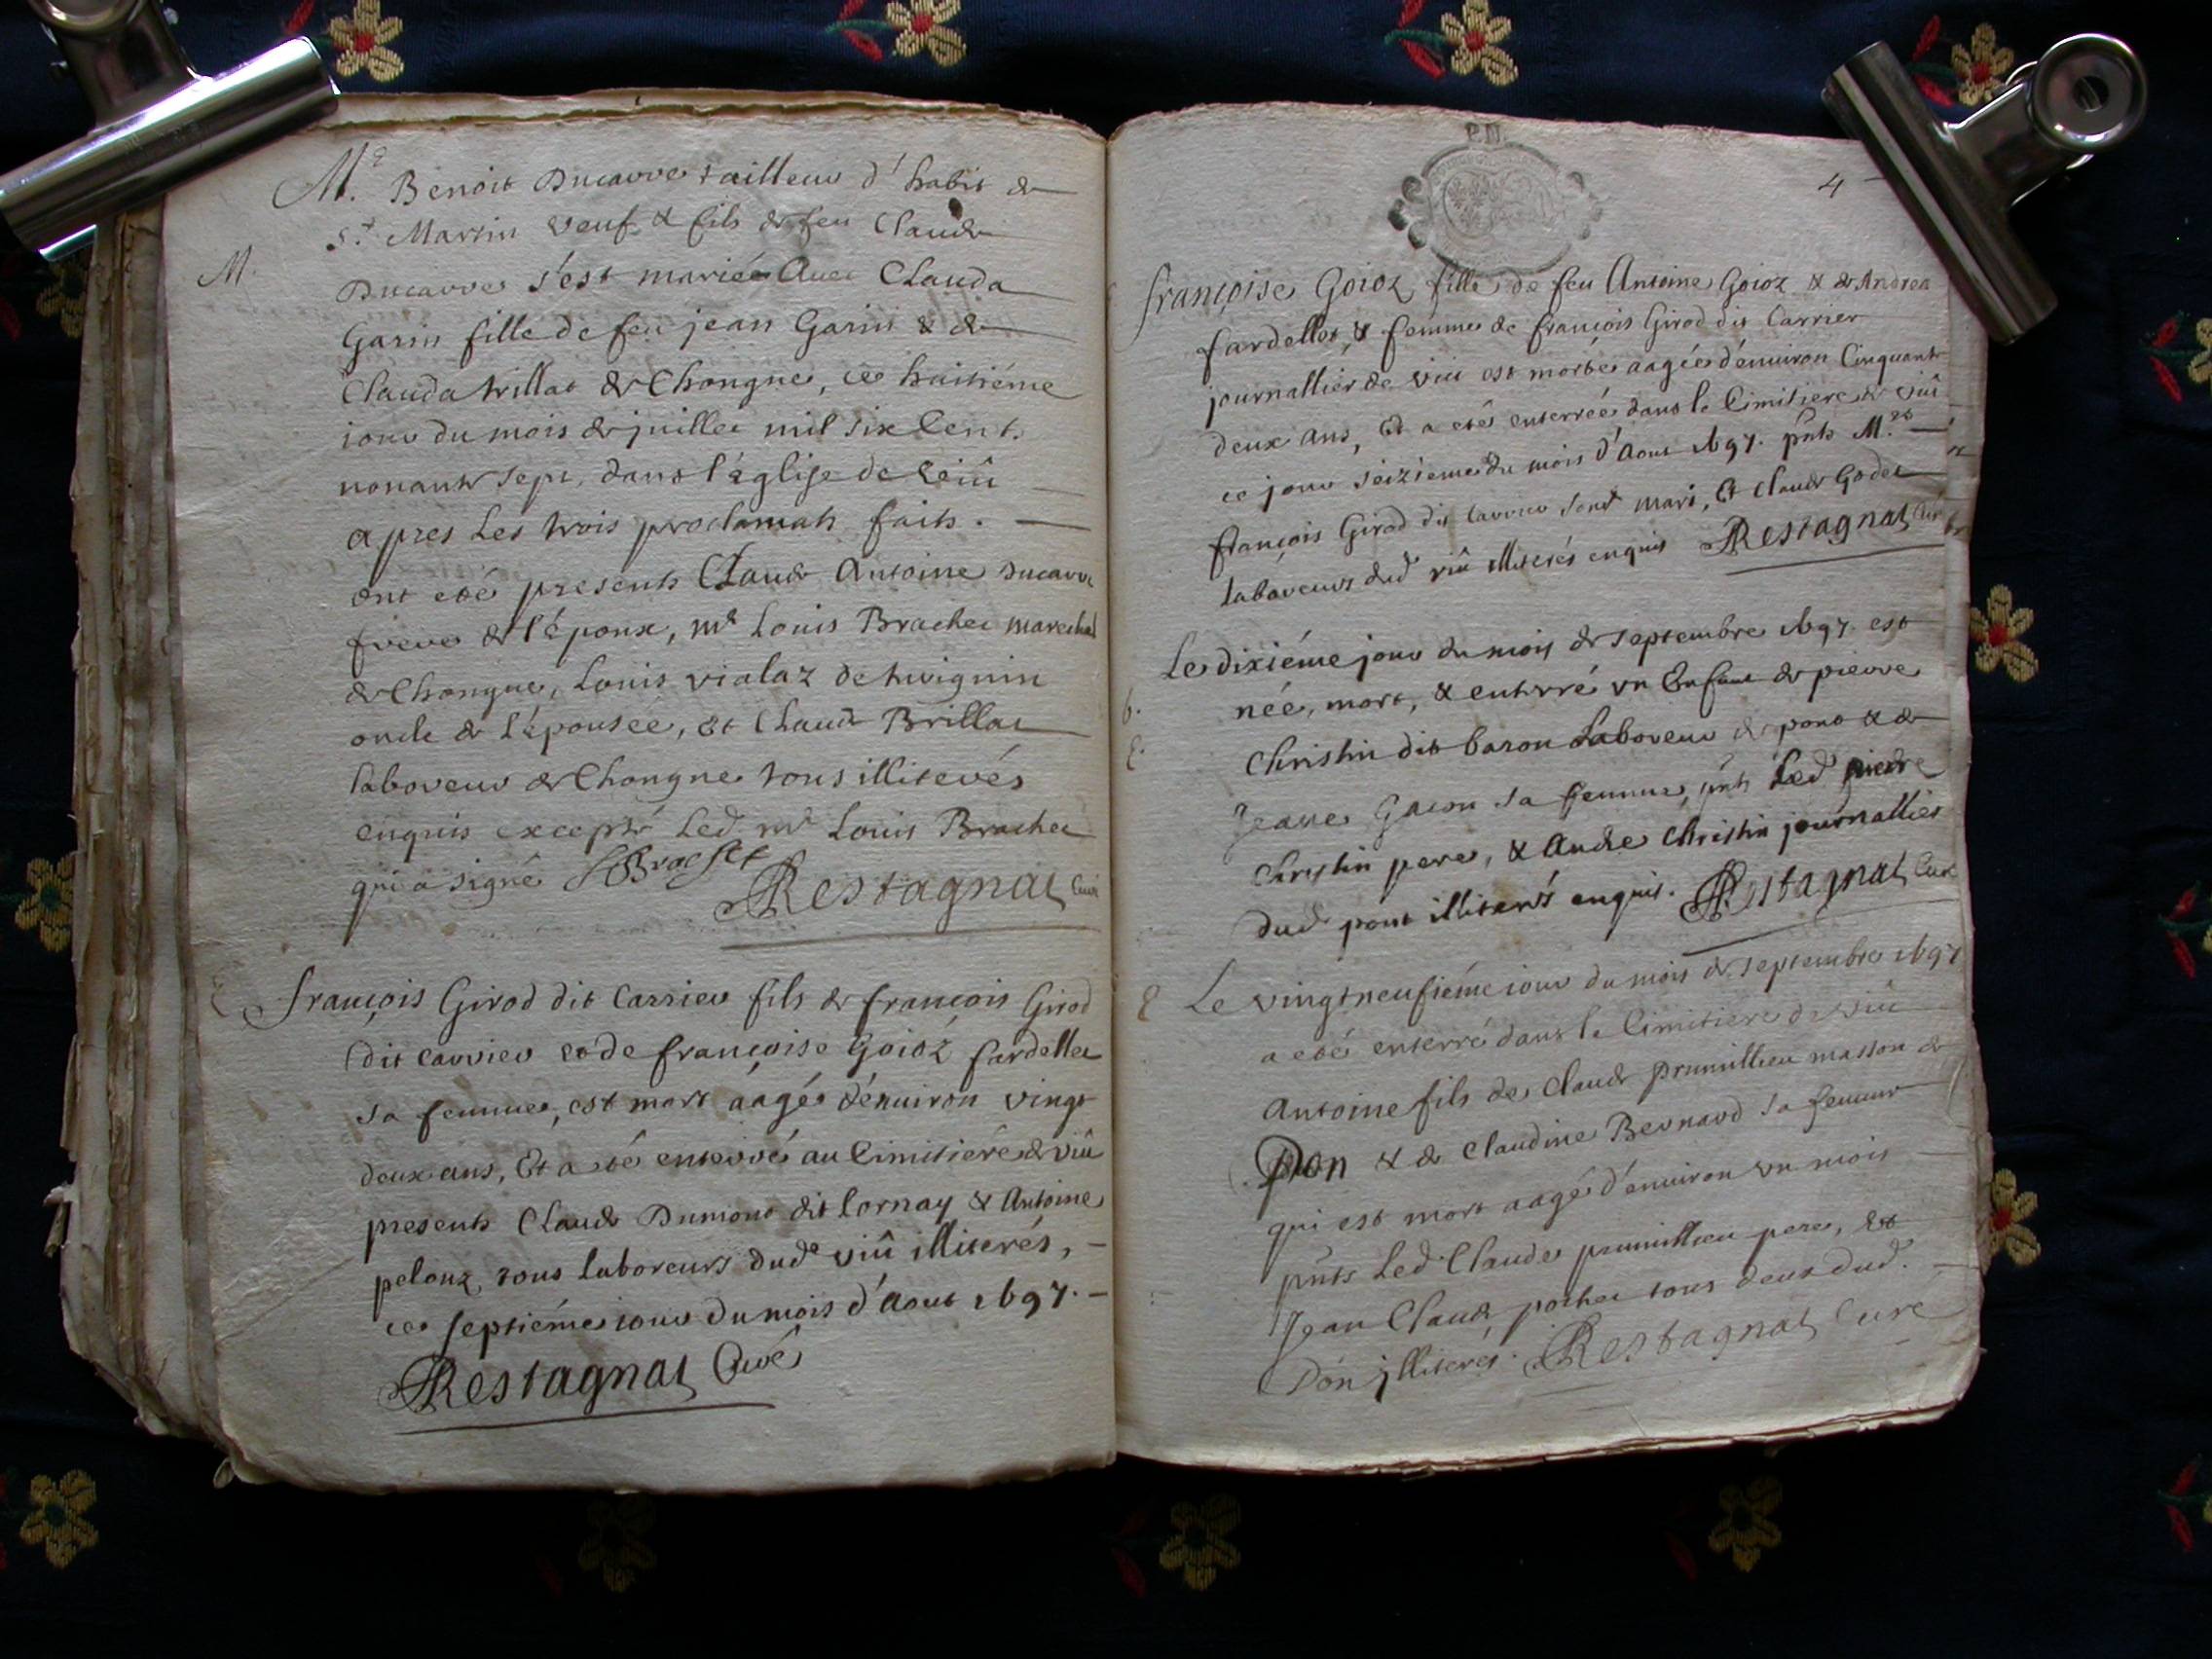 Mᵉ. Benoit Ducarre tailleur d'habit de
Sᵗ. Martin veuf & fils de feu Claude
M.
Ducarre s'est mariée avec Clauda
Garin fille de feu jean Garin & de
Clauda trillat de Chongne, ce huitiéme
iour du mois de juillet mil six Cent
nonante sept, dans l'église de
apres les trois proclamats faits.
ont eté presents Claude Antoine Ducarre
frere de l'époux, mᵉ Louis Brachet marechal
de Chongne, Louis vialaz de
oncle de l'épousée, et Claude Brillat
laboreur de Chongne tous illiterés
enquis excepté led. mᵉ Louis Brachet
qui a signé LBrachet
Restagnat Curé
françois Girod dit Carrier fils de françois Girod
dit carrier et de françoise Goioz fardellet
sa femme, est mort aagé d'enuiron vingt
deux ans, Et a eté enterré au Cimitiére de viû
presents Claude Dumont dit Cornay & Antoine
pelouz, tous laboreurs dudᵉ viû illiterés,
ce septiéme iour du mois d'Aout 1697.
Restagnat Curé
PII.
4
françoise Goioz fille de feu Antoine Goioz & de Andrea
fardellet, & femme de françois Girod dit Carrier
journallier de viû est morte aagée d'enuiron Cinquante
deux ans, Et a eté enterrée dans le Cimitiere de viû
ce jour seiziéme du mois d'Aout 1697. pnts M.
françois Girod dit Carrier son mari, Et Claude Godet
laboreurs dud viû illiterés enquis Restagnat Cur
Le dixiéme jour du mois de septembre 1697. est
née, mort, & enterré vn Enfant de pierre
b.
E.
Christin dit baron Laboreur de pont & de
Jeane Gacon sa femme, pnts led pierre
Christin pere, & Andre Christin journallier
dud pont illiterés enquis. Restagnat Curé
E
Le vingt neufiéme iour du mois de septembre 1697
a eté enterré dans le Cimitiere de viû
Antoine fils de Claude prunillieu masson de
Don & de Claudine Bernard sa femme
qui est mort aagé d'enuiron vn mois
pnts led Claude prunillieu pere, Et
Jean Claude pochet tous deux dud.
Don jlliterés. Restagnat Curé